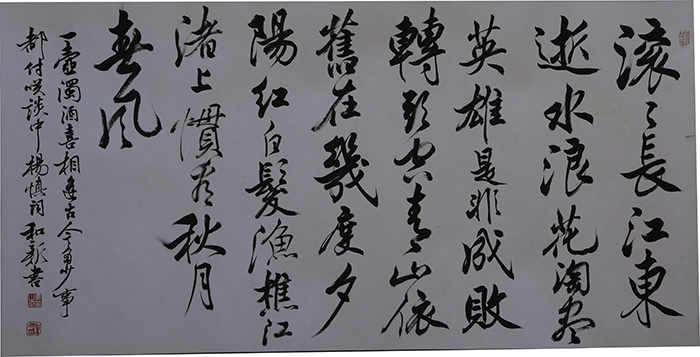 滚〻長江東
逝水浪花淘尽
英雄是非成敗
轉頭空青山依
舊在幾度夕
陽红白髮漁樵江
渚上慣看秋月
春风
一壶濁酒喜相逢古今多少事
都付咲談中楊慎词和彩書